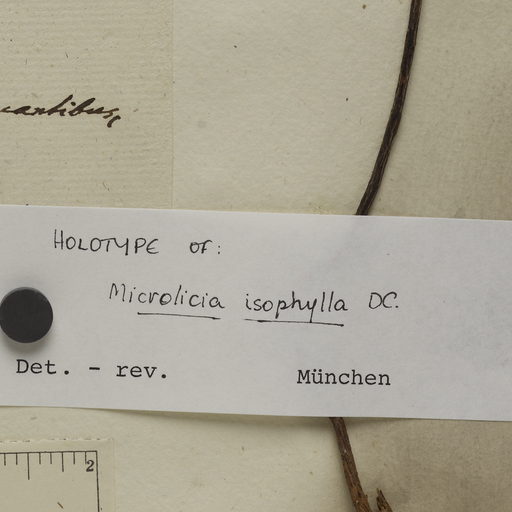 HOLOTYPE OF:
Microlicia isophylla DC.
Det. - rev. München
2